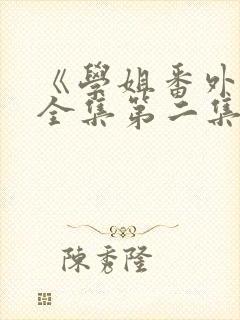 《學姐番外
全集第二集
陳秀隆